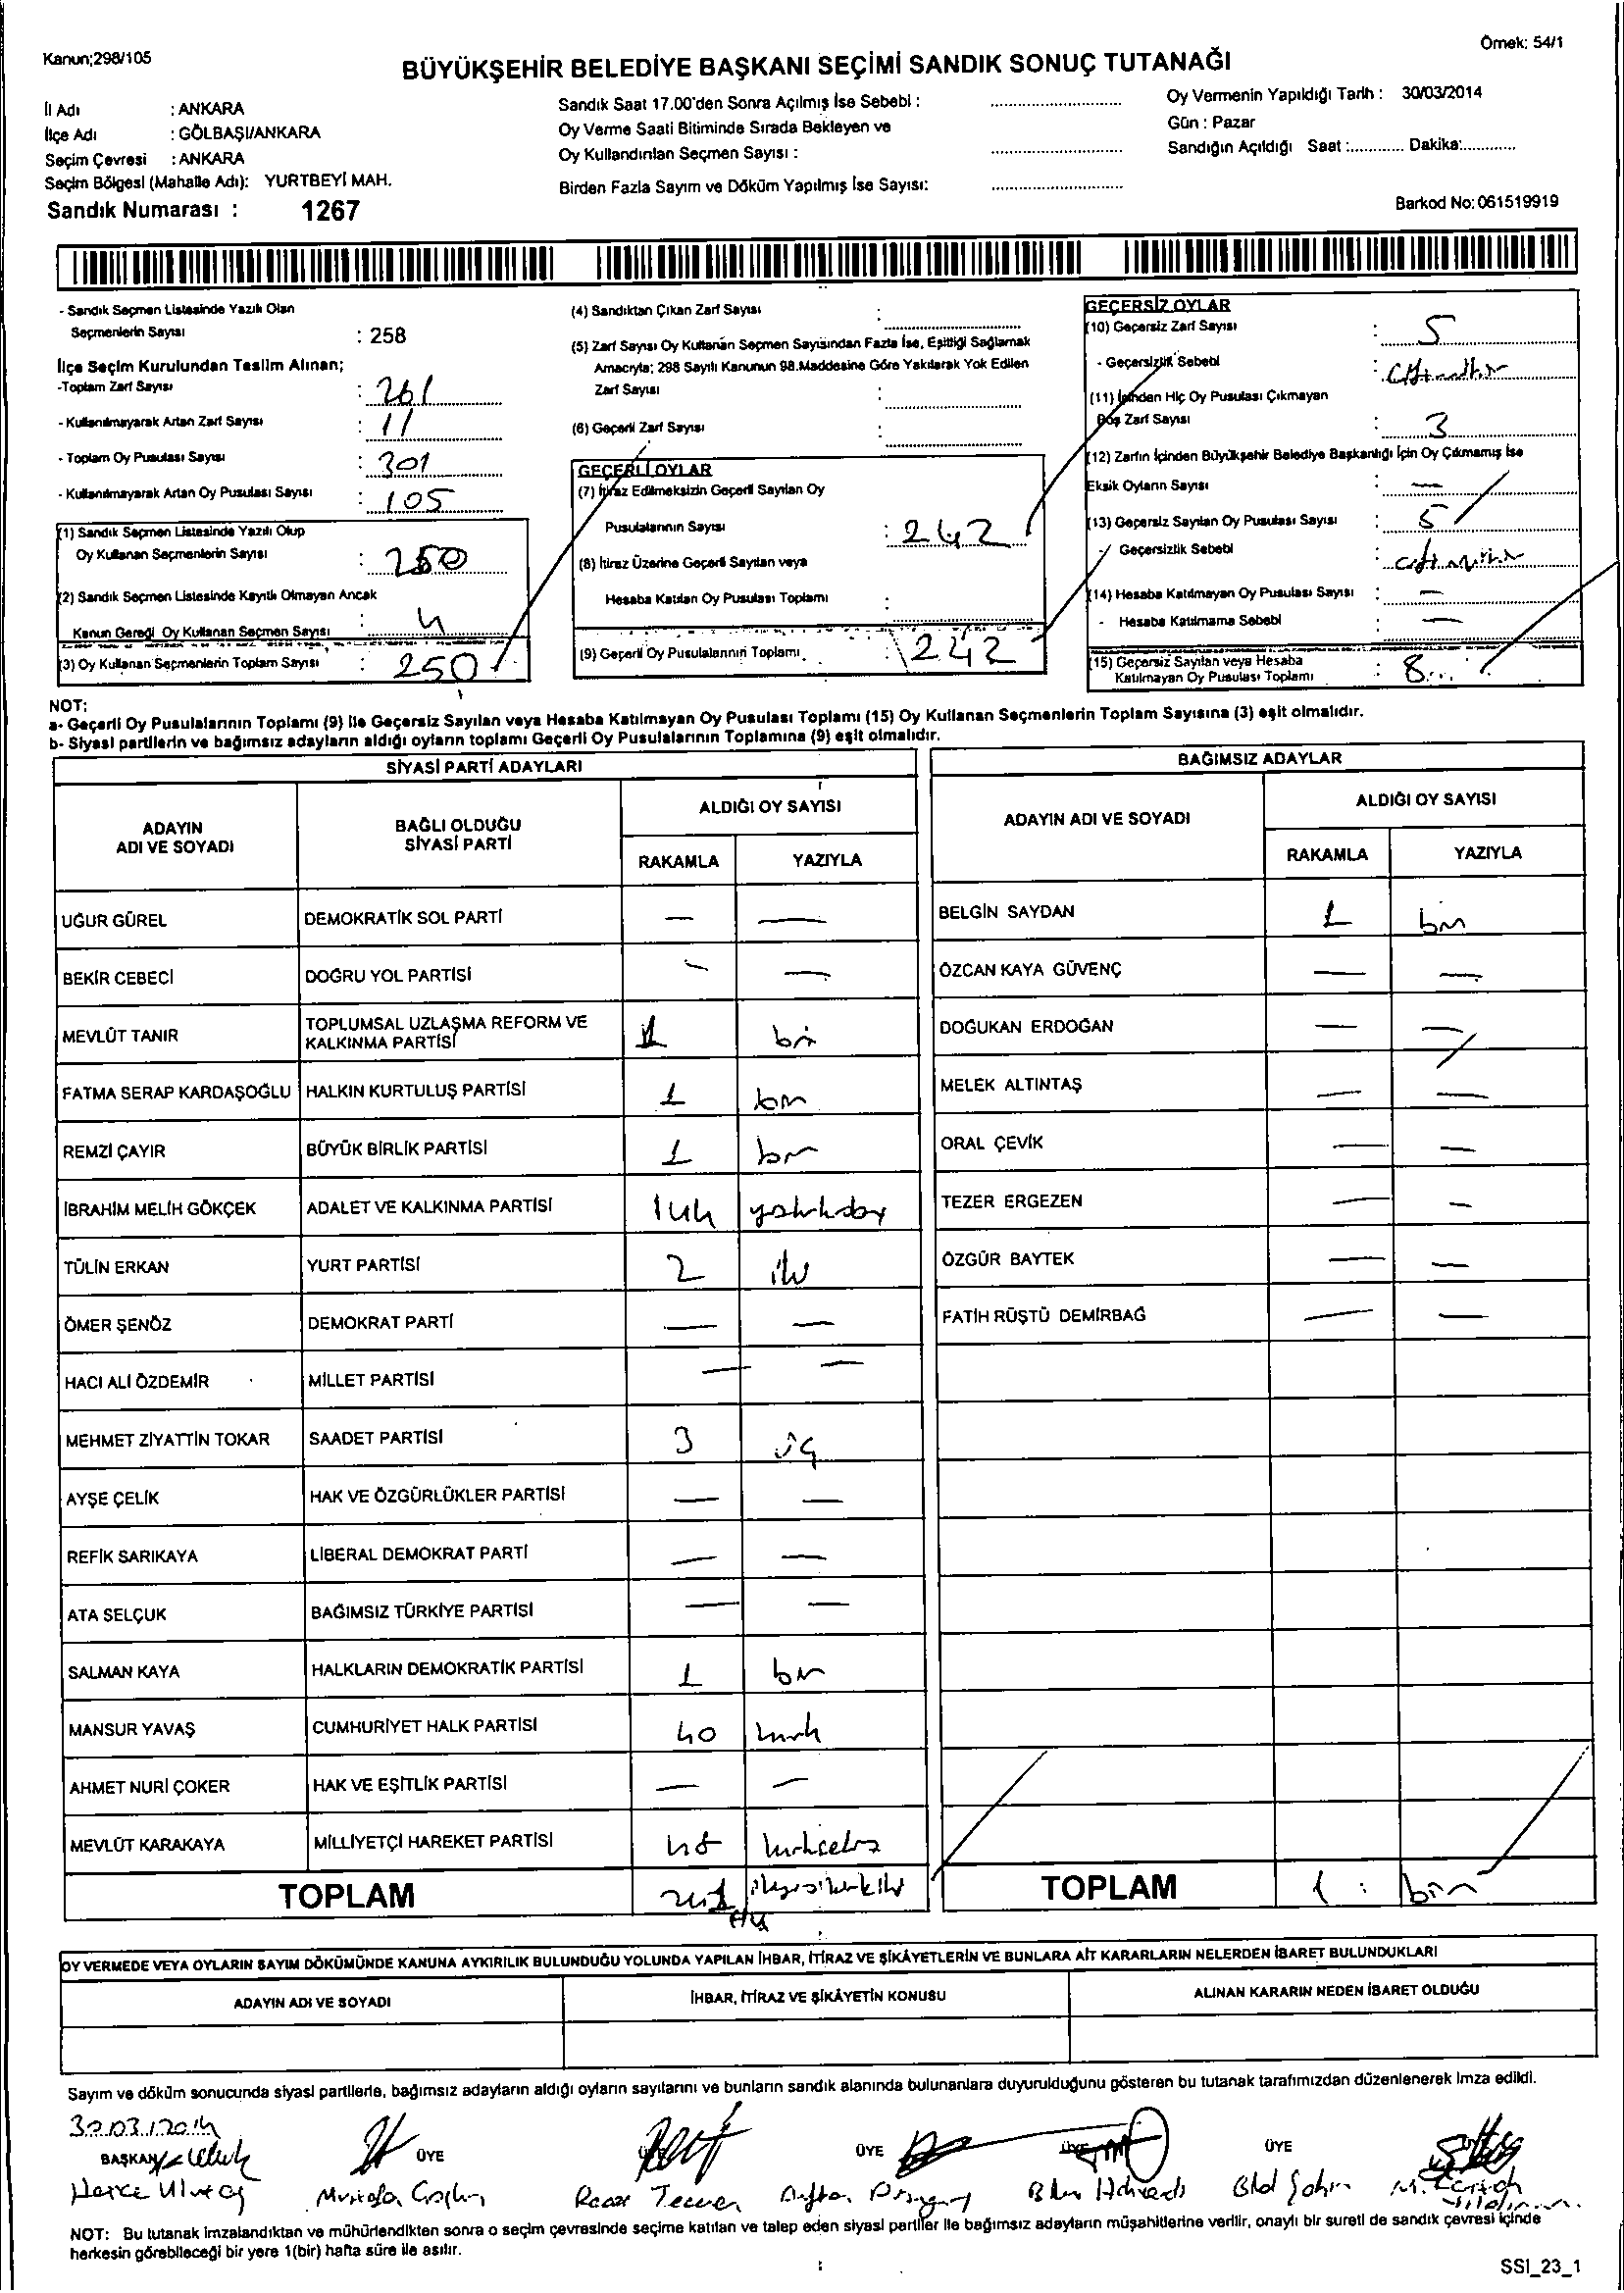 Kanun;298/105
Örnek: 54/1
BÜYÜKŞEHİR BELEDİYE BAŞKANI SEÇİMİ SANDIK SONUÇ TUTANAĞI
İl Adı : ANKARA
İlçe Adı : GÖLBAŞI/ANKARA
Seçim Çevresi : ANKARA
Seçim Bölgesi (Mahalle Adı): YURTBEYİ MAH.
Sandık Numarası : 1267
Sandık Saat 17.00'den Sonra Açılmış İse Sebebi :
Oy Verme Saati Bitiminde Sırada Bekleyen ve
Oy Kullandırılan Seçmen Sayısı :
Birden Fazla Sayım ve Döküm Yapılmış İse Sayısı:
Oy Vermenin Yapıldığı Tarih : 30/03/2014
Gün : Pazar
Sandığın Açıldığı Saat :............ Dakika:............
Barkod No: 061519919
- Sandık Seçmen Listesinde Yazılı Olan
Seçmenlerin Sayısı : 258
İlçe Seçim Kurulundan Teslim Alınan;
-Toplam Zarf Sayısı : 261
- Kullanılmayarak Artan Zarf Sayısı : 11
- Toplam Oy Pusulası Sayısı : 301
- Kullanılmayarak Artan Oy Pusulası Sayısı : 105
(1) Sandık Seçmen Listesinde Yazılı Olup
Oy Kullanan Seçmenlerin Sayısı : 250
(2) Sandık Seçmen Listesinde Kayıtlı Olmayan Ancak
Kanun Gereği Oy Kullanan Seçmen Sayısı : 4
(3) Oy Kullanan Seçmenlerin Toplam Sayısı : 250
(4) Sandıktan Çıkan Zarf Sayısı :
(5) Zarf Sayısı Oy Kullanan Seçmen Sayısından Fazla İse, Eşitliği Sağlamak
Amacıyla; 298 Sayılı Kanunun 98.Maddesine Göre Yakılarak Yok Edilen
Zarf Sayısı :
(6) Geçerli Zarf Sayısı :
GEÇERLİ OYLAR
(7) İtiraz Edilmeksizin Geçerli Sayılan Oy
Pusulalarının Sayısı : 242
(8) İtiraz Üzerine Geçerli Sayılan veya
Hesaba Katılan Oy Pusulası Toplamı :
(9) Geçerli Oy Pusulalarının Toplamı : 242
GEÇERSİZ OYLAR
(10) Geçersiz Zarf Sayısı : 5
- Geçersizlik Sebebi :
(11) İçinden Hiç Oy Pusulası Çıkmayan
Boş Zarf Sayısı : 3
(12) Zarfın İçinden Büyükşehir Belediye Başkanlığı İçin Oy Çıkmamış İse
Eksik Oyların Sayısı : —
(13) Geçersiz Sayılan Oy Pusulası Sayısı : 5
- Geçersizlik Sebebi :
(14) Hesaba Katılmayan Oy Pusulası Sayısı : —
- Hesaba Katılmama Sebebi : —
(15) Geçersiz Sayılan veya Hesaba
Katılmayan Oy Pusulası Toplamı : 8
NOT:
a- Geçerli Oy Pusulalarının Toplamı (9) ile Geçersiz Sayılan veya Hesaba Katılmayan Oy Pusulası Toplamı (15) Oy Kullanan Seçmenlerin Toplam Sayısına (3) eşit olmalıdır.
b- Siyasi partilerin ve bağımsız adayların aldığı oyların toplamı Geçerli Oy Pusulalarının Toplamına (9) eşit olmalıdır.
SİYASİ PARTİ ADAYLARI
ADAYIN ADI VE SOYADI
BAĞLI OLDUĞU SİYASİ PARTİ
ALDIĞI OY SAYISI
RAKAMLA YAZIYLA
UĞUR GÜREL DEMOKRATİK SOL PARTİ — —
BEKİR CEBECİ DOĞRU YOL PARTİSİ — —
MEVLÜT TANIR TOPLUMSAL UZLAŞMA REFORM VE KALKINMA PARTİSİ 1 bir
FATMA SERAP KARDAŞOĞLU HALKIN KURTULUŞ PARTİSİ 1 bir
REMZİ ÇAYIR BÜYÜK BİRLİK PARTİSİ 1 bir
İBRAHİM MELİH GÖKÇEK ADALET VE KALKINMA PARTİSİ 144
TÜLİN ERKAN YURT PARTİSİ 2 iki
ÖMER ŞENÖZ DEMOKRAT PARTİ — —
HACI ALİ ÖZDEMİR MİLLET PARTİSİ — —
MEHMET ZİYATTİN TOKAR SAADET PARTİSİ 3 üç
AYŞE ÇELİK HAK VE ÖZGÜRLÜKLER PARTİSİ — —
REFİK SARIKAYA LİBERAL DEMOKRAT PARTİ — —
ATA SELÇUK BAĞIMSIZ TÜRKİYE PARTİSİ — —
SALMAN KAYA HALKLARIN DEMOKRATİK PARTİSİ 1 bir
MANSUR YAVAŞ CUMHURİYET HALK PARTİSİ 40 kırk
AHMET NURİ ÇOKER HAK VE EŞİTLİK PARTİSİ — —
MEVLÜT KARAKAYA MİLLİYETÇİ HAREKET PARTİSİ 48 kırksekiz
TOPLAM 241
BAĞIMSIZ ADAYLAR
ADAYIN ADI VE SOYADI
ALDIĞI OY SAYISI
RAKAMLA YAZIYLA
BELGİN SAYDAN 1 bir
ÖZCAN KAYA GÜVENÇ — —
DOĞUKAN ERDOĞAN — —
MELEK ALTINTAŞ — —
ORAL ÇEVİK — —
TEZER ERGEZEN — —
ÖZGÜR BAYTEK — —
FATİH RÜŞTÜ DEMİRBAĞ — —
TOPLAM 1 bir
OY VERMEDE VEYA OYLARIN SAYIM DÖKÜMÜNDE KANUNA AYKIRILIK BULUNDUĞU YOLUNDA YAPILAN İHBAR, İTİRAZ VE ŞİKÂYETLERİN VE BUNLARA AİT KARARLARIN NELERDEN İBARET BULUNDUKLARI
ADAYIN ADI VE SOYADI
İHBAR, İTİRAZ VE ŞİKÂYETİN KONUSU
ALINAN KARARIN NEDEN İBARET OLDUĞU
Sayım ve döküm sonucunda siyasi partilerle, bağımsız adayların aldığı oyların sayılarını ve bunların sandık alanında bulunanlara duyurulduğunu gösteren bu tutanak tarafımızdan düzenlenerek imza edildi.
30.03.2014
BAŞKAN ÜYE ÜYE ÜYE ÜYE ÜYE ÜYE
NOT: Bu tutanak imzalandıktan ve mühürlendikten sonra o seçim çevresinde seçime katılan ve talep eden siyasi partiler ile bağımsız adayların müşahitlerine verilir, onaylı bir sureti de sandık çevresi içinde
herkesin görebileceği bir yere 1(bir) hafta süre ile asılır.
SSI_23_1